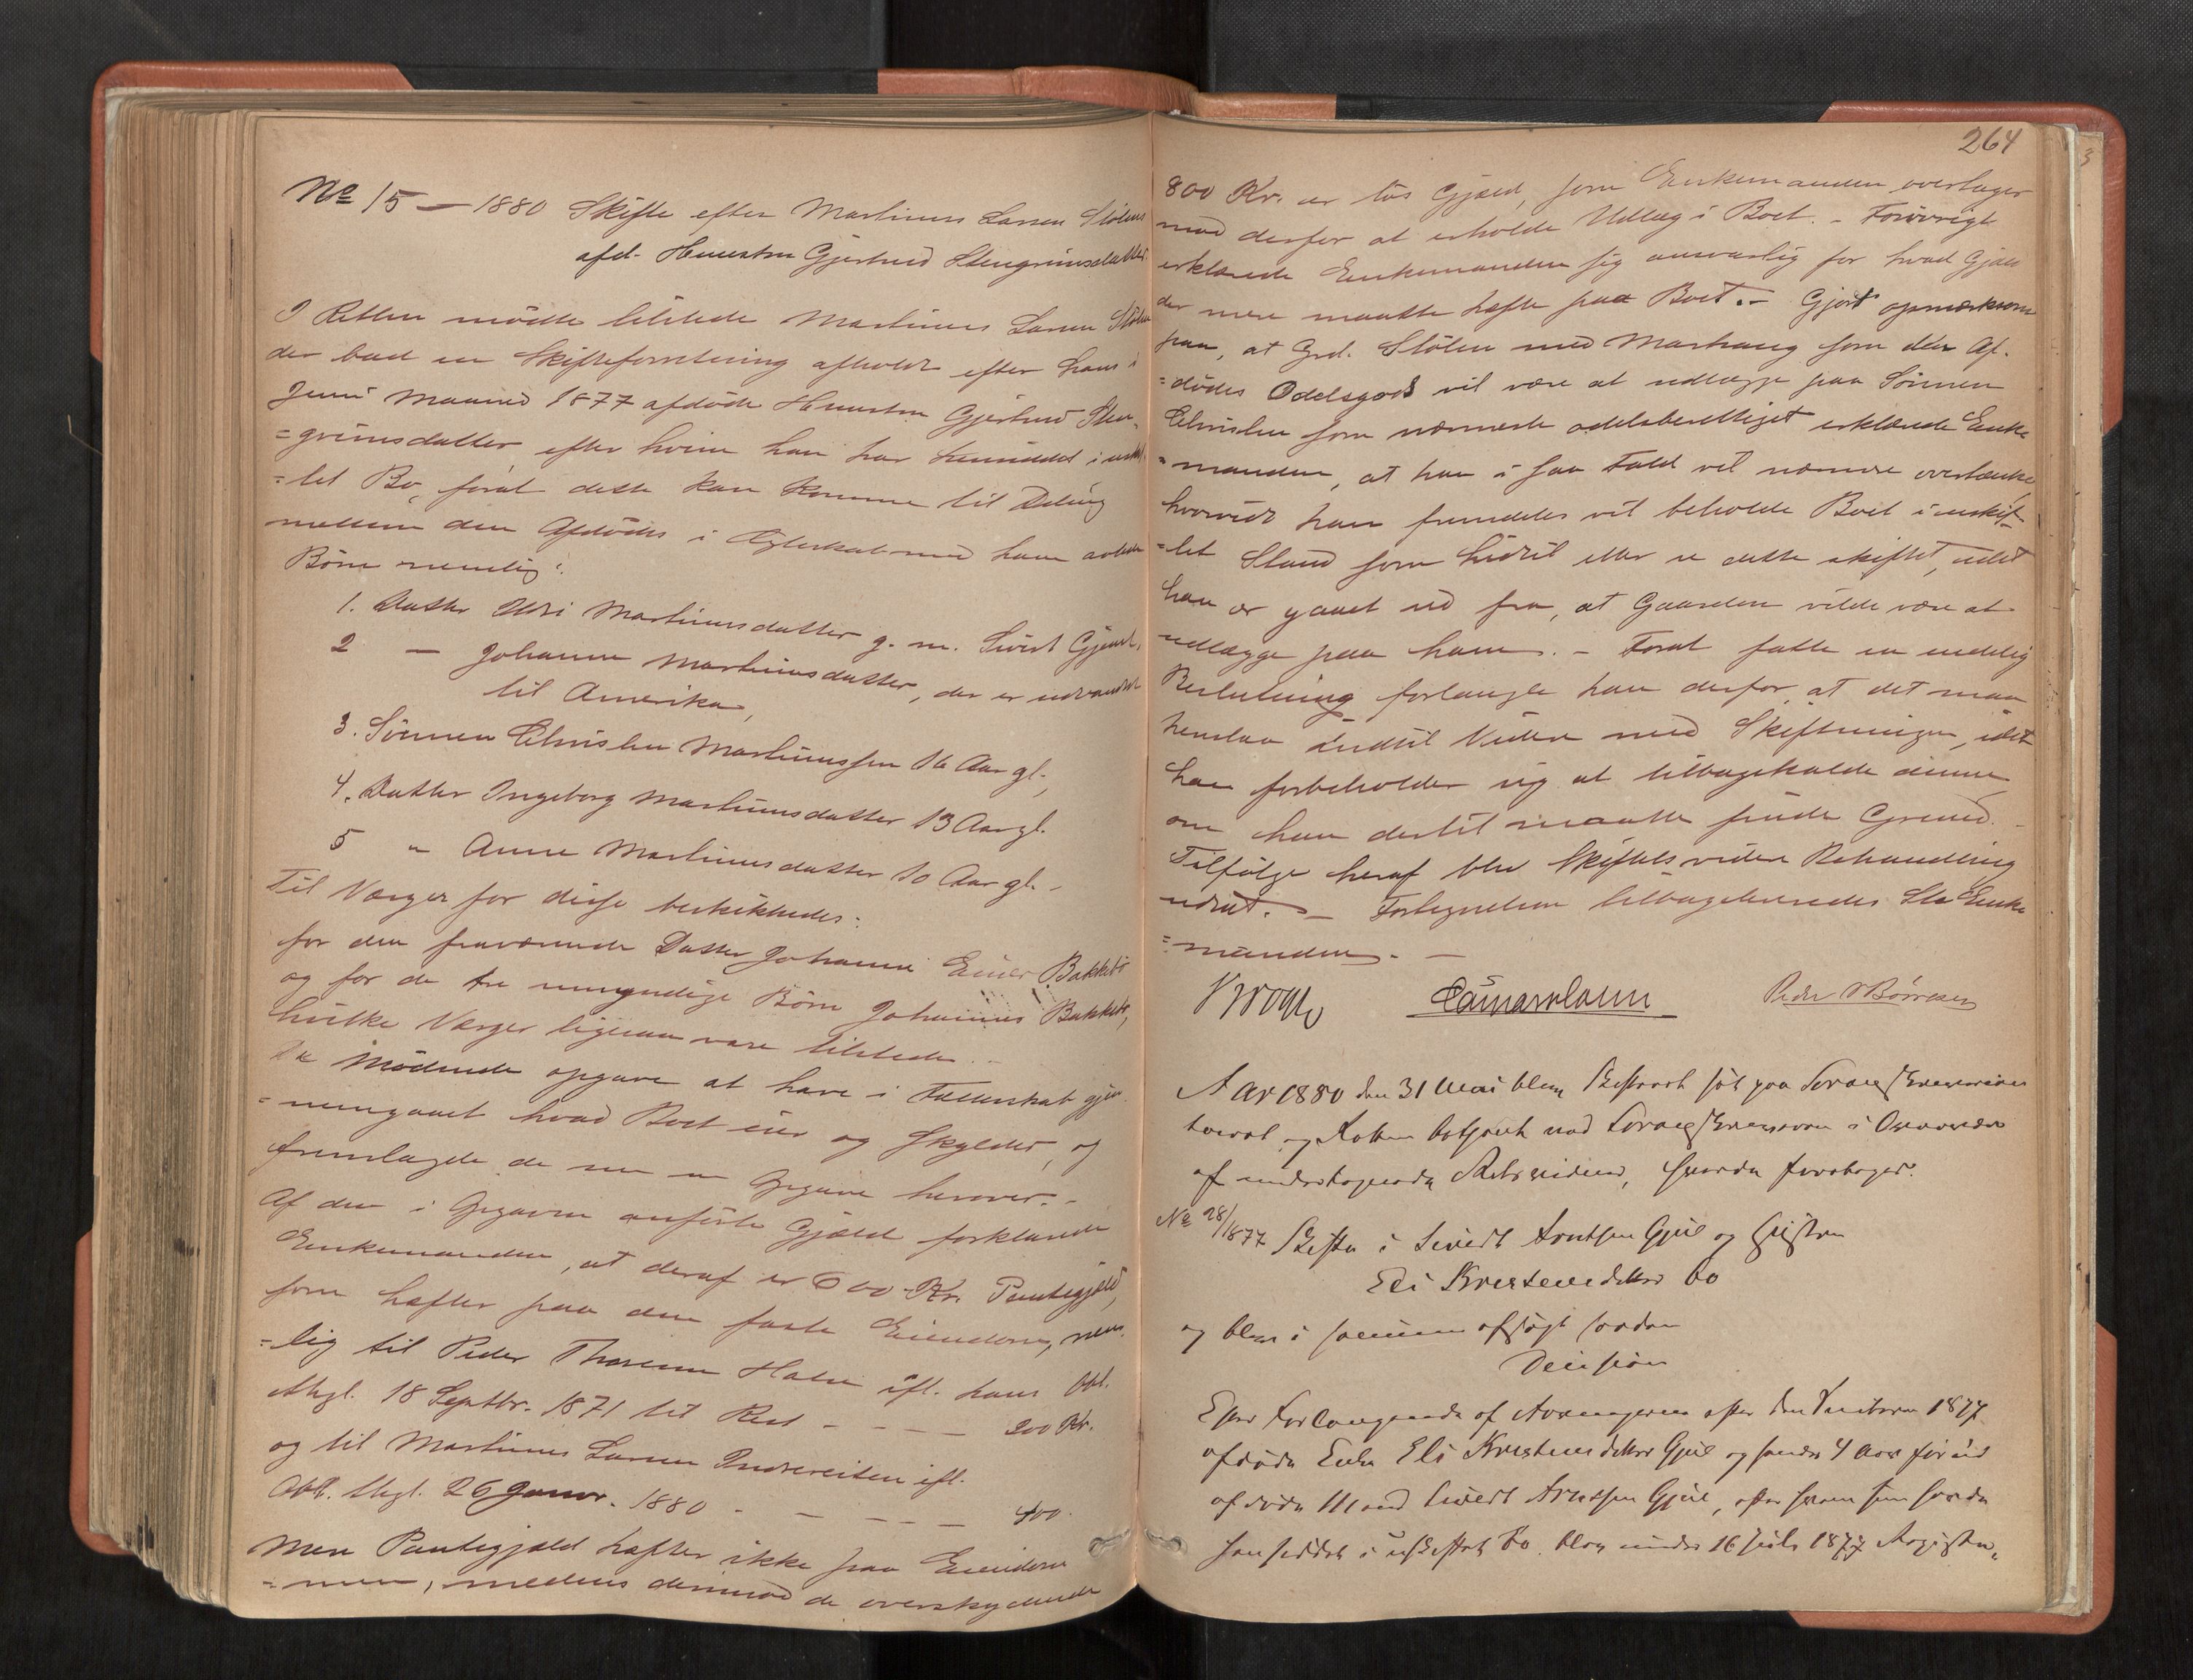 No 15 — 1880 Skifte efter Martinus Larsen Stølens
afd. Hustru Gjertrud Stengrimsdatter.
I Retten mødte tilstede Martinus Larsen Stølen
der bad en Skifteforretning afholdt efter hans i
Juni Maaned 1877 afdøde Hustru Gjertrud Sten-
=grimsdatter efter hvem han har hensiddet i uskif-
=tet Bo, forat dette kan komme til Deling
mellem den Afdødes i Ægteskab med ham avlede
Børn nemlig:
1. Datter Marthinusdatter g. m. Sivert
2 — Johanne Marthinusdatter, der er udvandret
til Amerika,
3. Sønnen Christen Marthinussen 16 Aar gl.,
4. Datter Ingeborg Marthinusdatter 13 Aar gl.
5 " Anne Marthinusdatter 10 Aar gl. -
Til Værger for disse beskikkedes:
for den fraværende Datter Johanne Einer Bakkebø
og for de tre umyndige Børn Johannes Bakkebø,
hvilke Værger ligesaa vare tilstede. -
De Mødende opgave at have i Fællesskab gjen-
=nemgaaet hvad Boet eier og skylder, og
fremlagde de nu en Opgave herover. -
Af den i Opgaven anførte Gjæld forklarede
Enkemanden, at deraf er 600 Kr. Pantegjæld,
som hæfter paa den faste Eiendom, nem-
=lig til Peder Thoresen Hatle ifl. hans Obl.
thgl. 18 Septbr. 1871 til Rest - - - - 200 Kr.
og til Martinus Larsen Indreeiten ifl.
Obl. thgl. 26 Januar. 1880 - - - - - 400.
Mere Pantegjæld hæfter ikke paa Eiendom
=men, medens derimod de overskydende
264
800 Kr. er løs Gjæld, som Enkemanden overtager
mod derfor at erholde Udlæg i Boet. - Forøvrigt
erklærede Enkemanden sig ansvarlig for hvad Gjæld
der mere maatte hæfte paa Boet. - Gjort opmærksom
paa, at Grd. Stölen med Marhaug som den Af-
=dødes Odelsgods vil være at udlægge paa Sønnen
Christen som nærmeste odelsberettiget erklærede Enke
=manden, at han i saa Fald vil nærmere overtænke
hvorvidt han fremdeles vil beholde Boet i uskif-
=tet Stand som hidtil eller se dette skiftet, idet
han er gaaet ud fra, at Gaarden vilde være at
udlægge paa ham. - Forat fatte en endelig
Beslutning forlangte han derfor at det maa
henstaa indtil Videre med Skiftningen, idet
han forbeholder sig at tilbagekalde denne
om han dertil maatte finde Grund. -
Tilfølge heraf blev Skiftets videre Behandling
udsat. - Fortegnelsen tilbageleveredes Enke
=manden. -
Krogh Peder Børresen
Aar 1880 den 31 Mai blev Skifteret sat paa Sorenskriver
og Retten betjent ved Sorenskriveren i Overvær
af undertegnede Retsvidner, hvorda foretoges:
No 28/1877 Skifte i Sivert Arntsen Gjül og Hustru
Eli Kristensdatter Bo
og blev i samme afsagt saadan
Decision
Efter Forlangende af Arvingerne efter den 1877
afdøde Enke Eli Kristensdatter Gjül og hendes 4 Aar forud
afdøde Mand Sivert Arntsen Gjül, efter hvem hun havde
hensiddet i uskiftet Bo, blev under 16 Juli 1877 Registre-